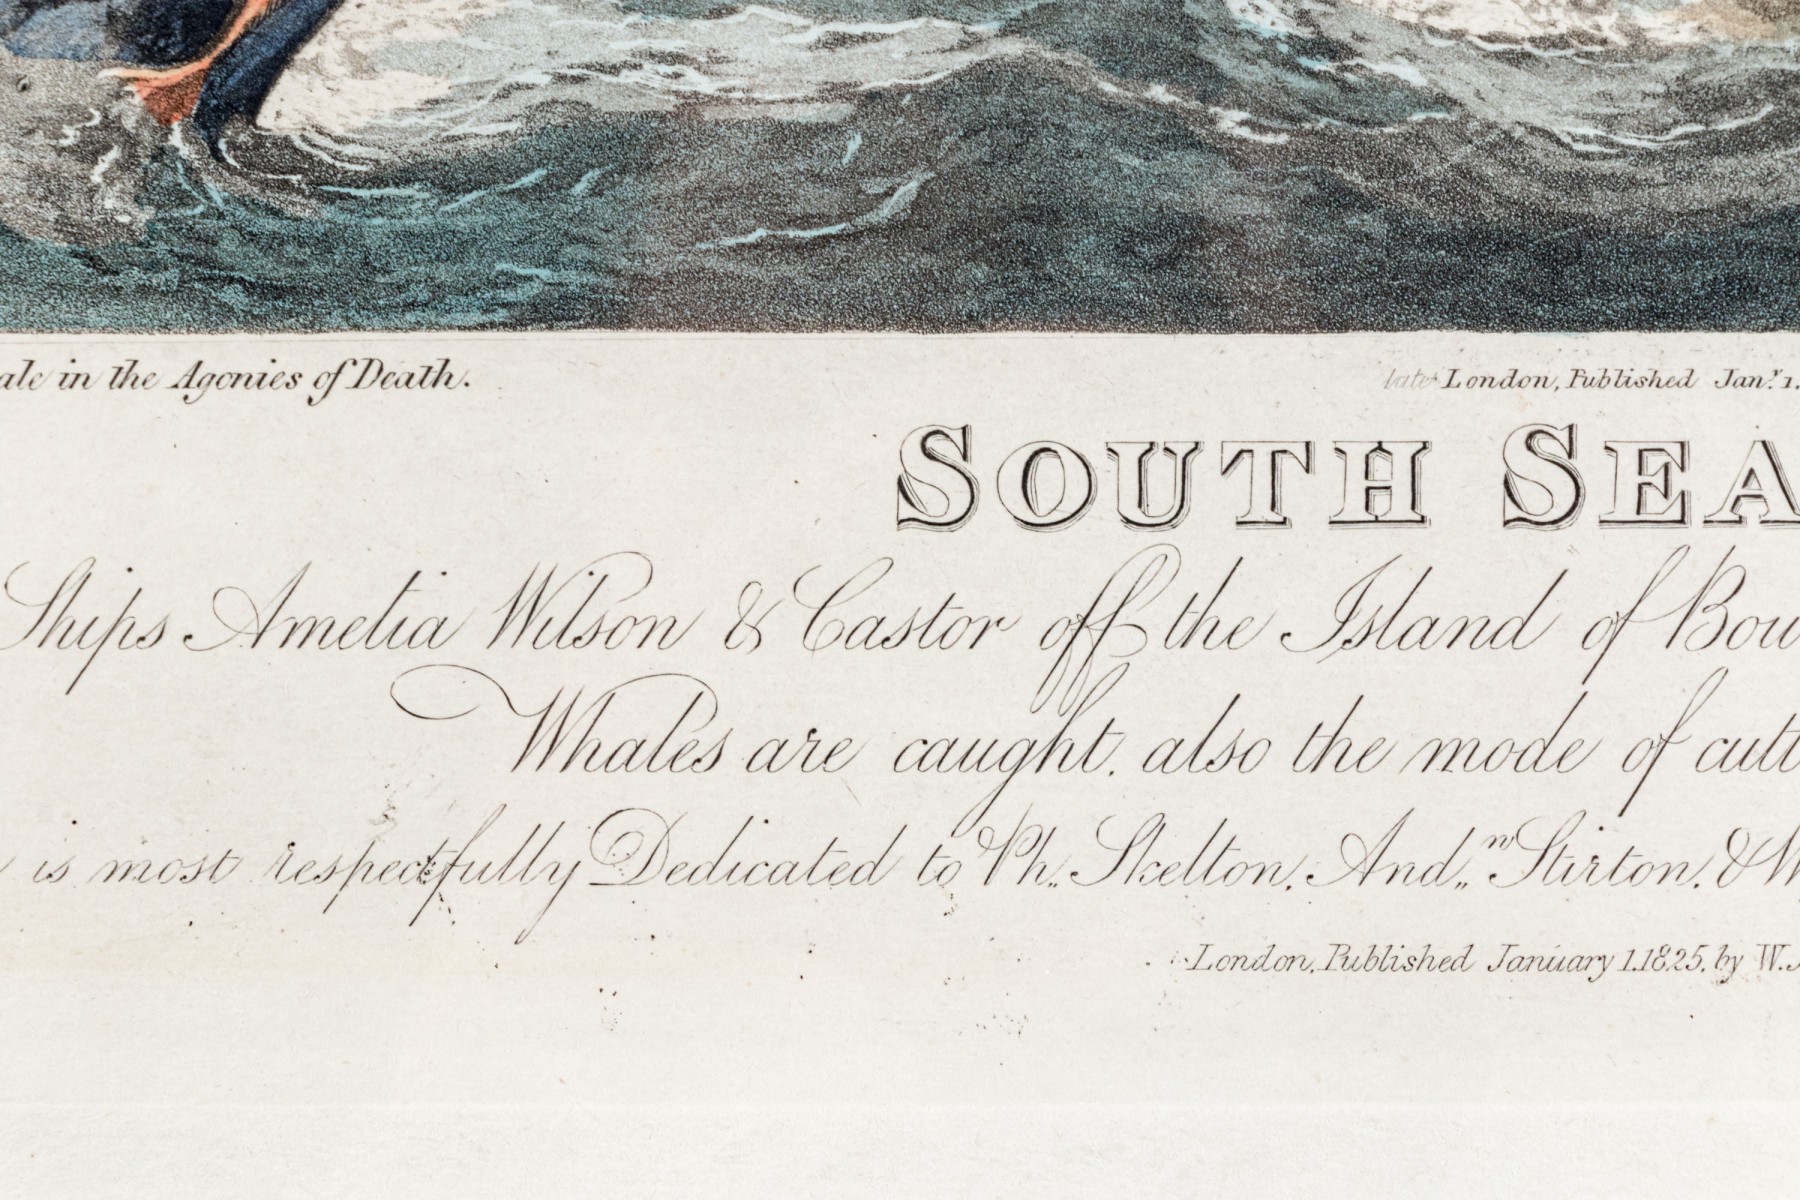 ale in the Agonies of Death.
late London, Published Jan.y 1.
SOUTH SEA
Ships Amelia Wilson & Castor off the Island of Bou
Whales are caught. also the mode of cutt
is most respectfully Dedicated to Ph.. Skelton, And..w Stirton, & W
London, Published January 1.1825, by W.